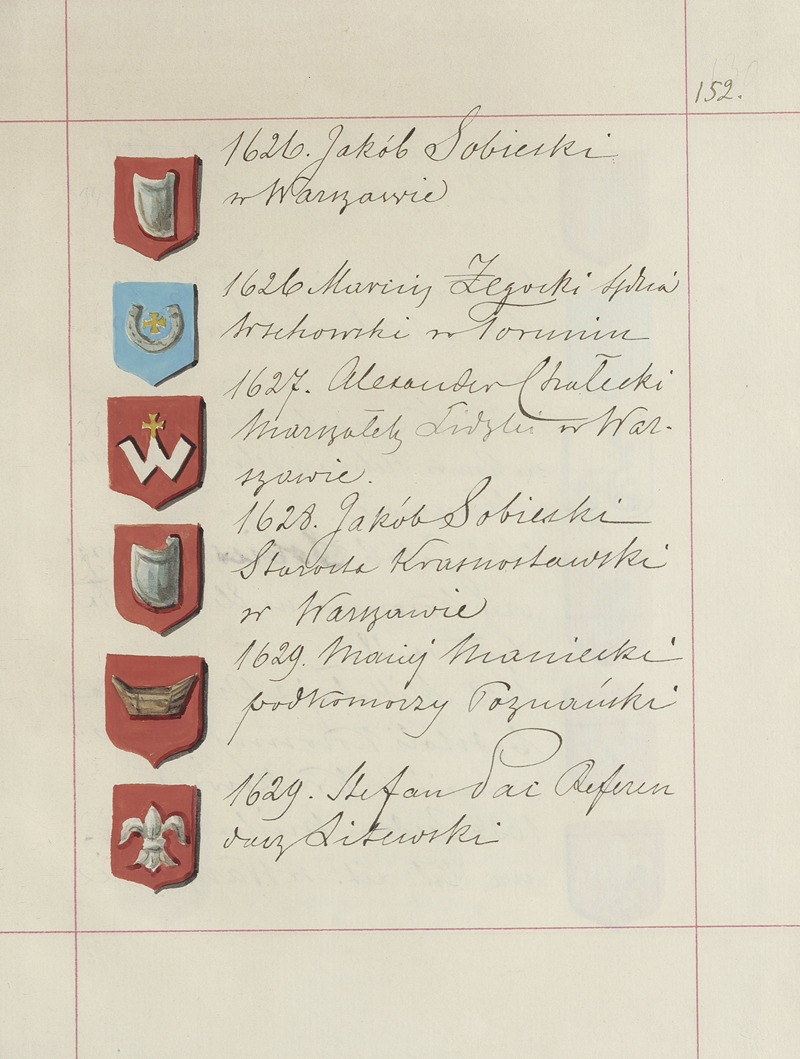 152.
1626. Jakób Sobieski
w Warszawie
1626 Marcin Żegocki sędzia
wschowski w Toruniu
1627. Alexander Chalecki
Marszałek Lidzki w War-
szawie.
1628. Jakób Sobieski
Starosta Krasnostawski
w Warszawie
1629. Maciej Maniecki
podkomorzy Poznański
1629. Stefan Pac Referen
darz Litewski